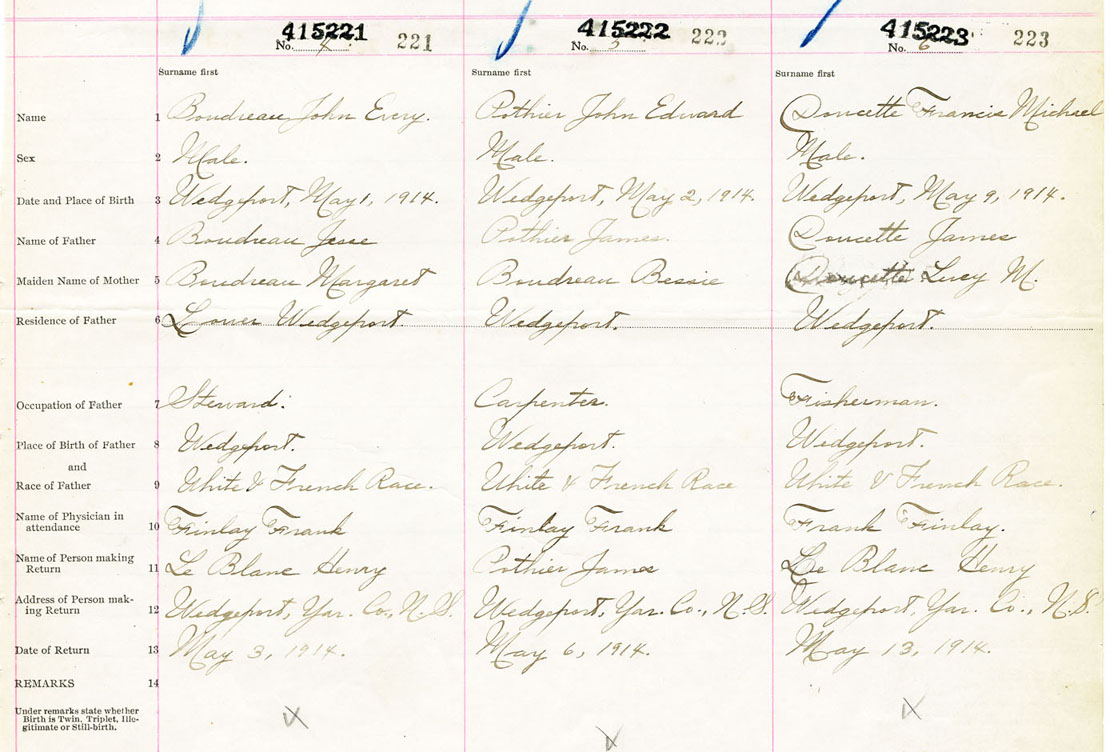 415221 415222 415223
No. 4. 221 No. 5 222 No. 6 223
Surname first Surname first Surname first
Name 1 Boudreau John Every. Pothier John Edward Doucette Francis Michael
Sex 2 Male. Male. Male.
Date and Place of Birth 3 Wedgeport, May 1, 1914. Wedgeport, May 2, 1914. Wedgeport, May 9, 1914.
Name of Father 4 Boudreau Jesse Pothier James. Doucette James
Maiden Name of Mother 5 Boudreau Margaret Boudreau Bessie Doucette Lucy M.
Residence of Father 6 Lower Wedgeport Wedgeport. Wedgeport.
Occupation of Father 7 Steward. Carpenter. Fisherman.
Place of Birth of Father 8 Wedgeport. Wedgeport. Wedgeport.
and
Race of Father 9 White & French Race. White & French Race White & French Race.
Name of Physician in
attendance 10 Finlay Frank Finlay Frank Frank Finlay.
Name of Person making
Return 11 Le Blanc Henry Pothier James Le Blanc Henry
Address of Person mak-
ing Return 12 Wedgeport, Yar. Co., N.S. Wedgeport, Yar. Co., N.S. Wedgeport, Yar. Co., N.S.
Date of Return 13 May 3, 1914. May 6, 1914. May 13, 1914.
REMARKS 14
Under remarks state whether
Birth is Twin, Triplet, Ille-
gitimate or Still-birth.